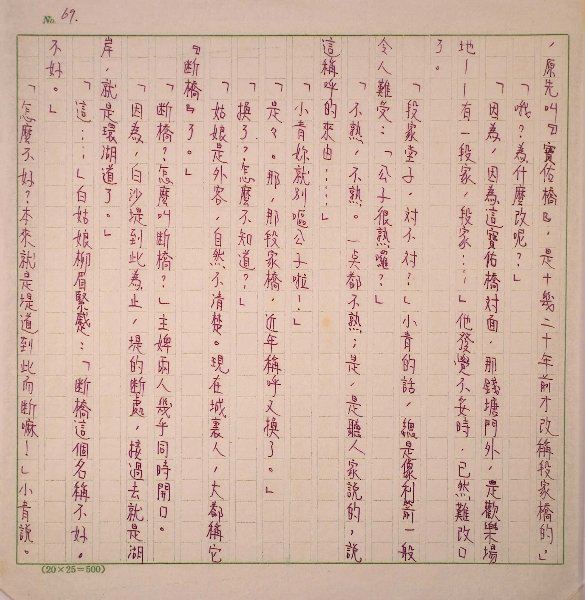 No. 69.
,原先叫『寶佑橋』,是十幾二十年前才改稱段家橋的。」
「哦?為什麼改呢?」
「因為,因為這寶佑橋对面,那錢塘門外,是歡樂場
地——有一段家,段家⋯⋯」他發覺不妥時,已然難改口
了。
「段家堂子,对不对?」小青的話,總是像利箭一般
令人難受:「公子很熟囉?」
「不熟,不熟。一点都不熟;是,是聽人家說的,說
這稱呼的來由⋯⋯」
「小青妳就別嘔公子啦!」
「是々。那,那段家橋,近年稱呼又換了。」
「換了?怎麼不知道?」
「姑娘是外客,自然不清楚。現在城裏人,大都稱它
『断橋』了。」
「断橋?怎麼叫断橋?」主婢兩人幾乎同時開口。
「因為,白沙堤到此為止,堤的断處,接過去就是湖
岸,就是環湖道了。」
「這⋯⋯」白姑娘柳眉緊蹙:「断橋這個名稱不好。
不好。」
「怎麼不好?本來就是堤道到此而断嘛!」小青說。
(20×25=500)